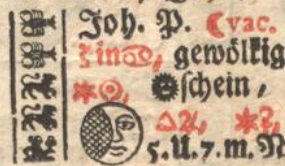 Joh. P. ☾vac.
☿in♋, gewölkig
✶☉, schein,
△♃, ✶☿,
5.U.7.m.N